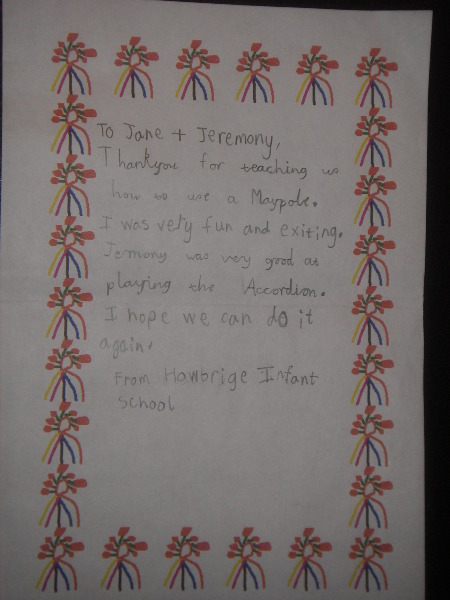 To Jane + Jeremony,
Thankyou for teaching us
how to use a Maypole.
I was very fun and exiting.
Jermony was very good at
playing the Accordion.
I hope we can do it
again.
From Hawbrige Infant
School